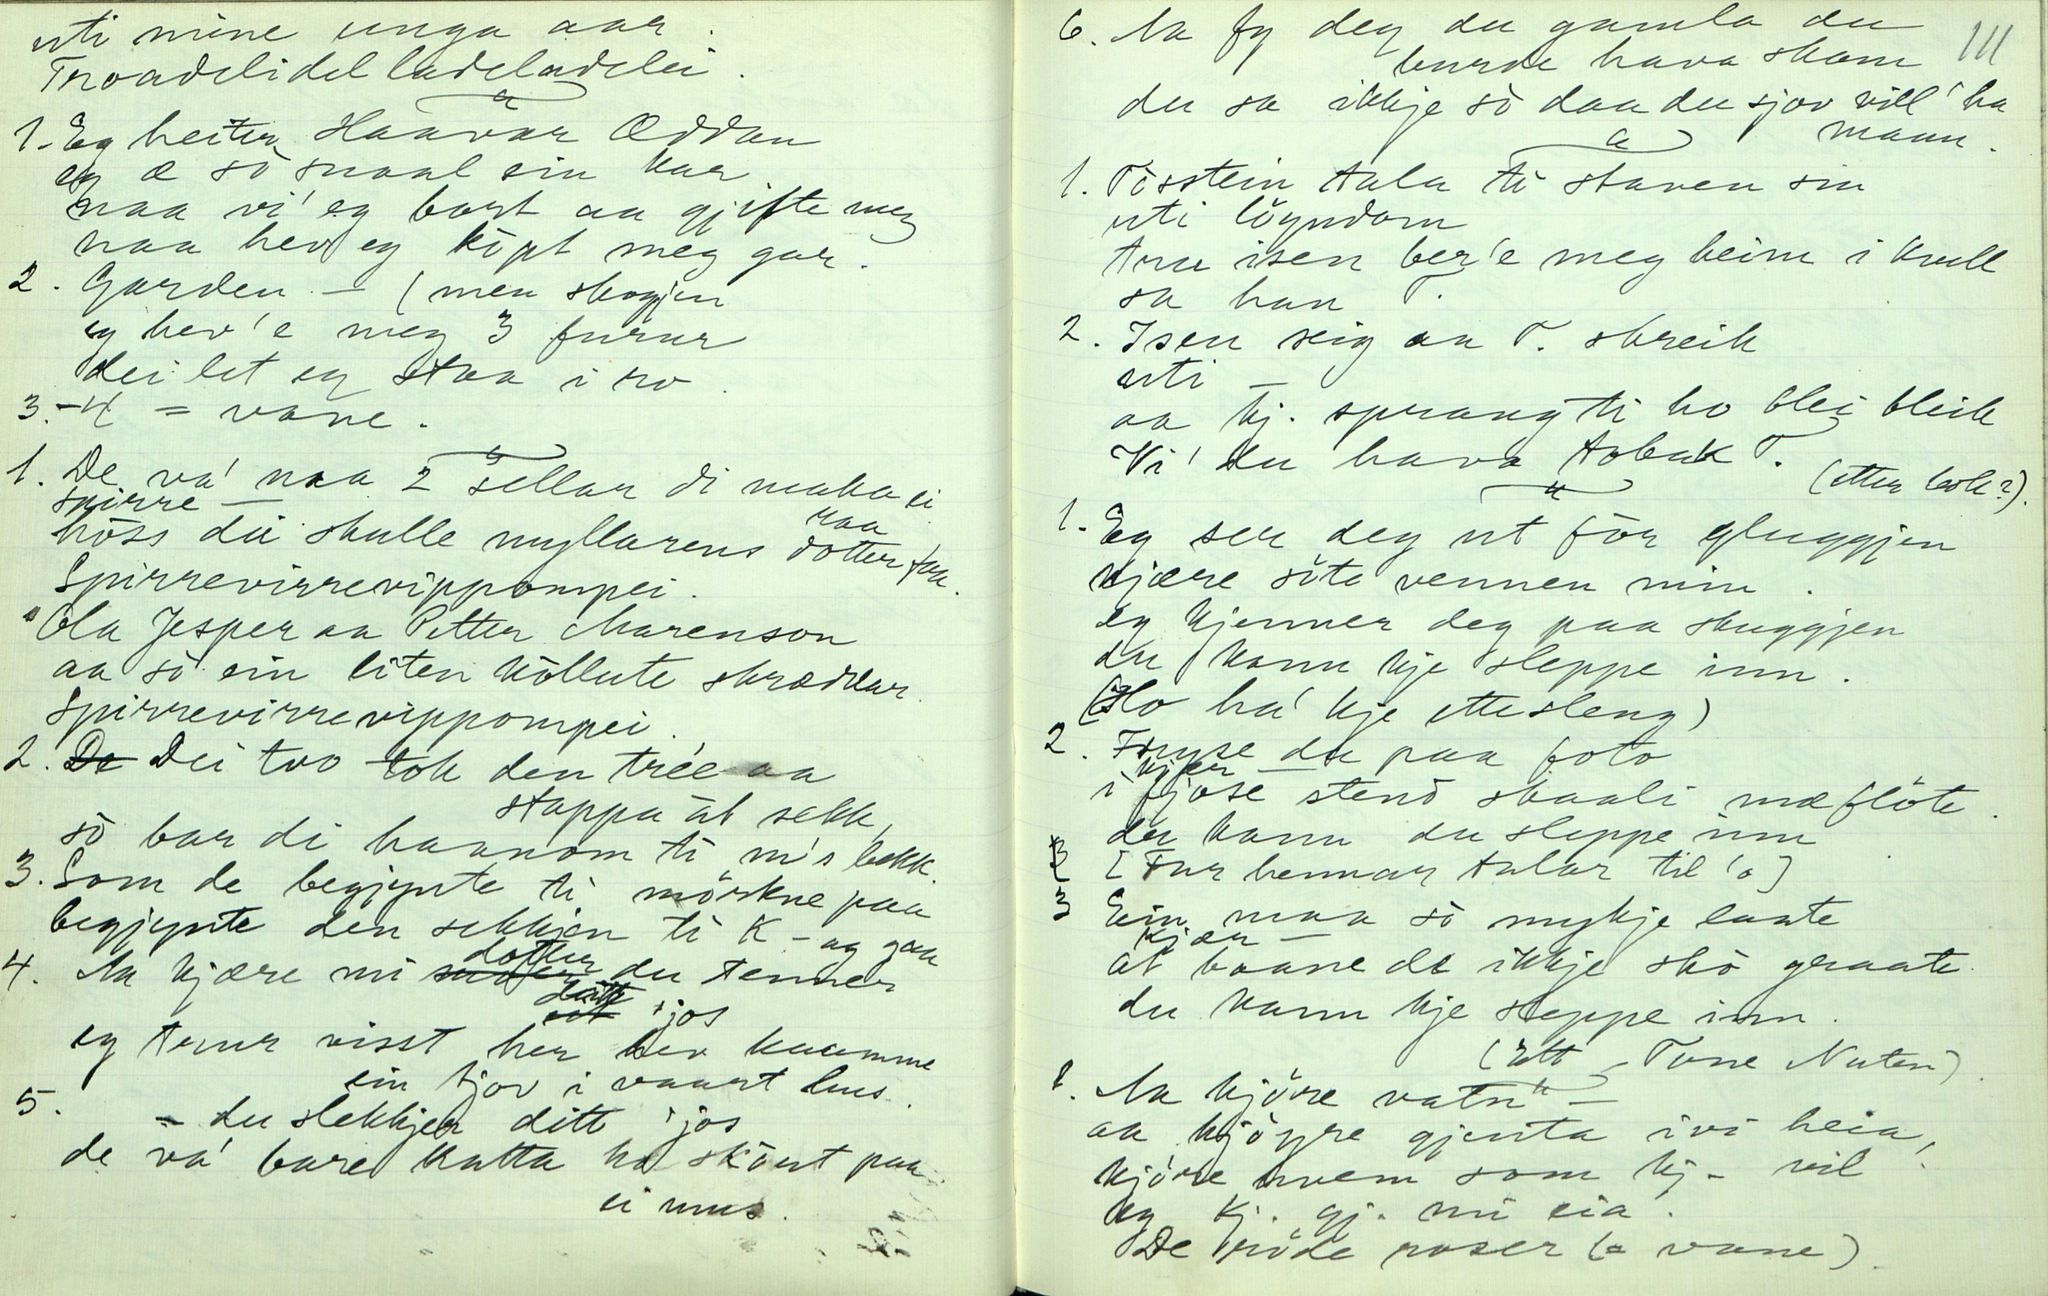 uti mine unga aar.
Troadelidelladeladelei.
1. Eg heiter Haavar Æddan
eg æ so snaal ein kar
naa vi' eg bort aa gjifte meg
naa hev eg köpt meg gar.
2. Garden – (men skogjen
eg hev'e meg 3 furur
dei let eg staa i ro.
3.-4 = vane.
1. De va' naa 2 sellar di maka ei
spirre –
höss dei skulle myllarens dotter faa
Spirrevirrevippompei.
Ola Jesper aa Petter Marenson
aa so ein liten köllute skræddar
Spirrevirrevippompei.
2. De Dei tvo tok den tree aa
stappa ut sekk
so bar di haanom ti m's bekk.
3. Som de begjynte ti mörkne paa
begjynte den sekkjen ti K – og gaa
4. Aa kjære mi dotter du tenner
ditt 'jos
eg trur visst her hev kaamme
ein tjov i vaart hus.
5. – du slekkjer ditt 'jos
de va' bare katta ho sköut paa
ei mus.
111
6. Aa fy deg du gamla du
burde hava skam
du sa ikkje so daa du sjov vill' ha
mann.
1. Tosstein tala ti staven sin
uti löyndom
tru isen ber'e meg heim i kvell
sa han T.
2. Isen seig aa T. skreik
uti –
aa kj. sprang ti ho blei bleik
Vi' du hava tobak T.
(etter bok?).
1. Eg ser deg ut för gluggjen
kjære söte vennen min.
eg kjenner deg paa skuggjen
du kann kje sleppe inn.
(Ho ha' kje ettesleng)
2. Fryse du paa foto
kjær –
i fjose stend skaali mæ flöte.
der kann du sleppe inn
[Far hennar talar til 'o]
3 Ein maa so mykje laate
kjær –
at baane de ikkje sko graate
du kann kje sleppe inn.
(Ett – Tone Nuten)
1. Aa kjöre vatn –
aa kjöyre gjenta ivi heia,
kjöre hvem som kj – vil
eg kj. gj. mi eia.
De röde roser (= vane)